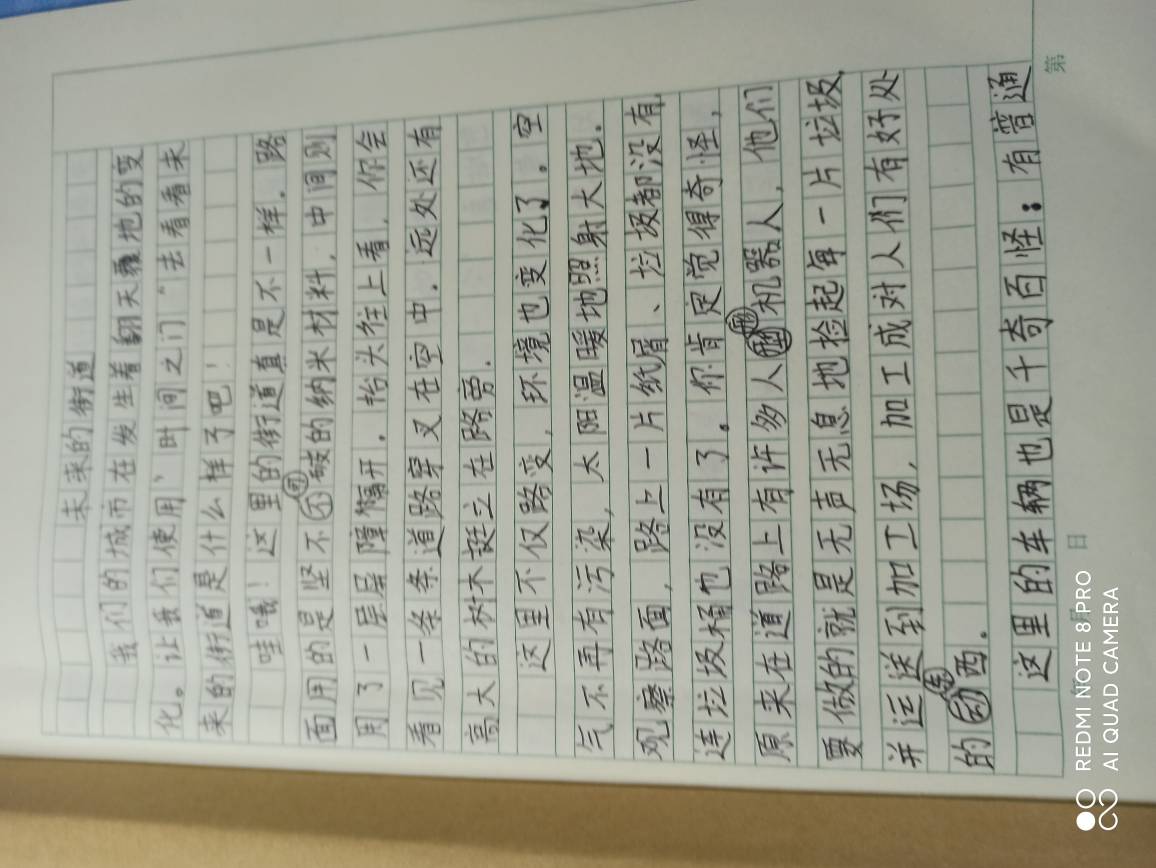 未来的街道
我们的城市在发生着翻天覆地的变
化。让我们使用"时间之门"去看看未
来的街道是什么样了吧！
哇哦！这里的街道真是不一样。路
面用的是坚不可破的纳米材料，中间则
用了一层层障隔开。抬头往上看，你会
看见一条条道路穿叉在空中。远处还有
高大的树木挺立在路旁.
这里不仅路变，环境也变化了。空
气不再有污染，太阳温暖地照射大地.
观察路面，路上一片纸屑、垃圾都没有,
连垃圾桶也没有了。你肯定觉得奇怪，
原来在道路上有许多人形机器人，他们
要做的就是无声无息地捡起每一片垃圾,
并运送到加工场，加工成对人们有好处
的东西。
这里的车辆也是千奇百怪：有普通
年 月 日
第
REDMI NOTE 8 PRO
AI QUAD CAMERA